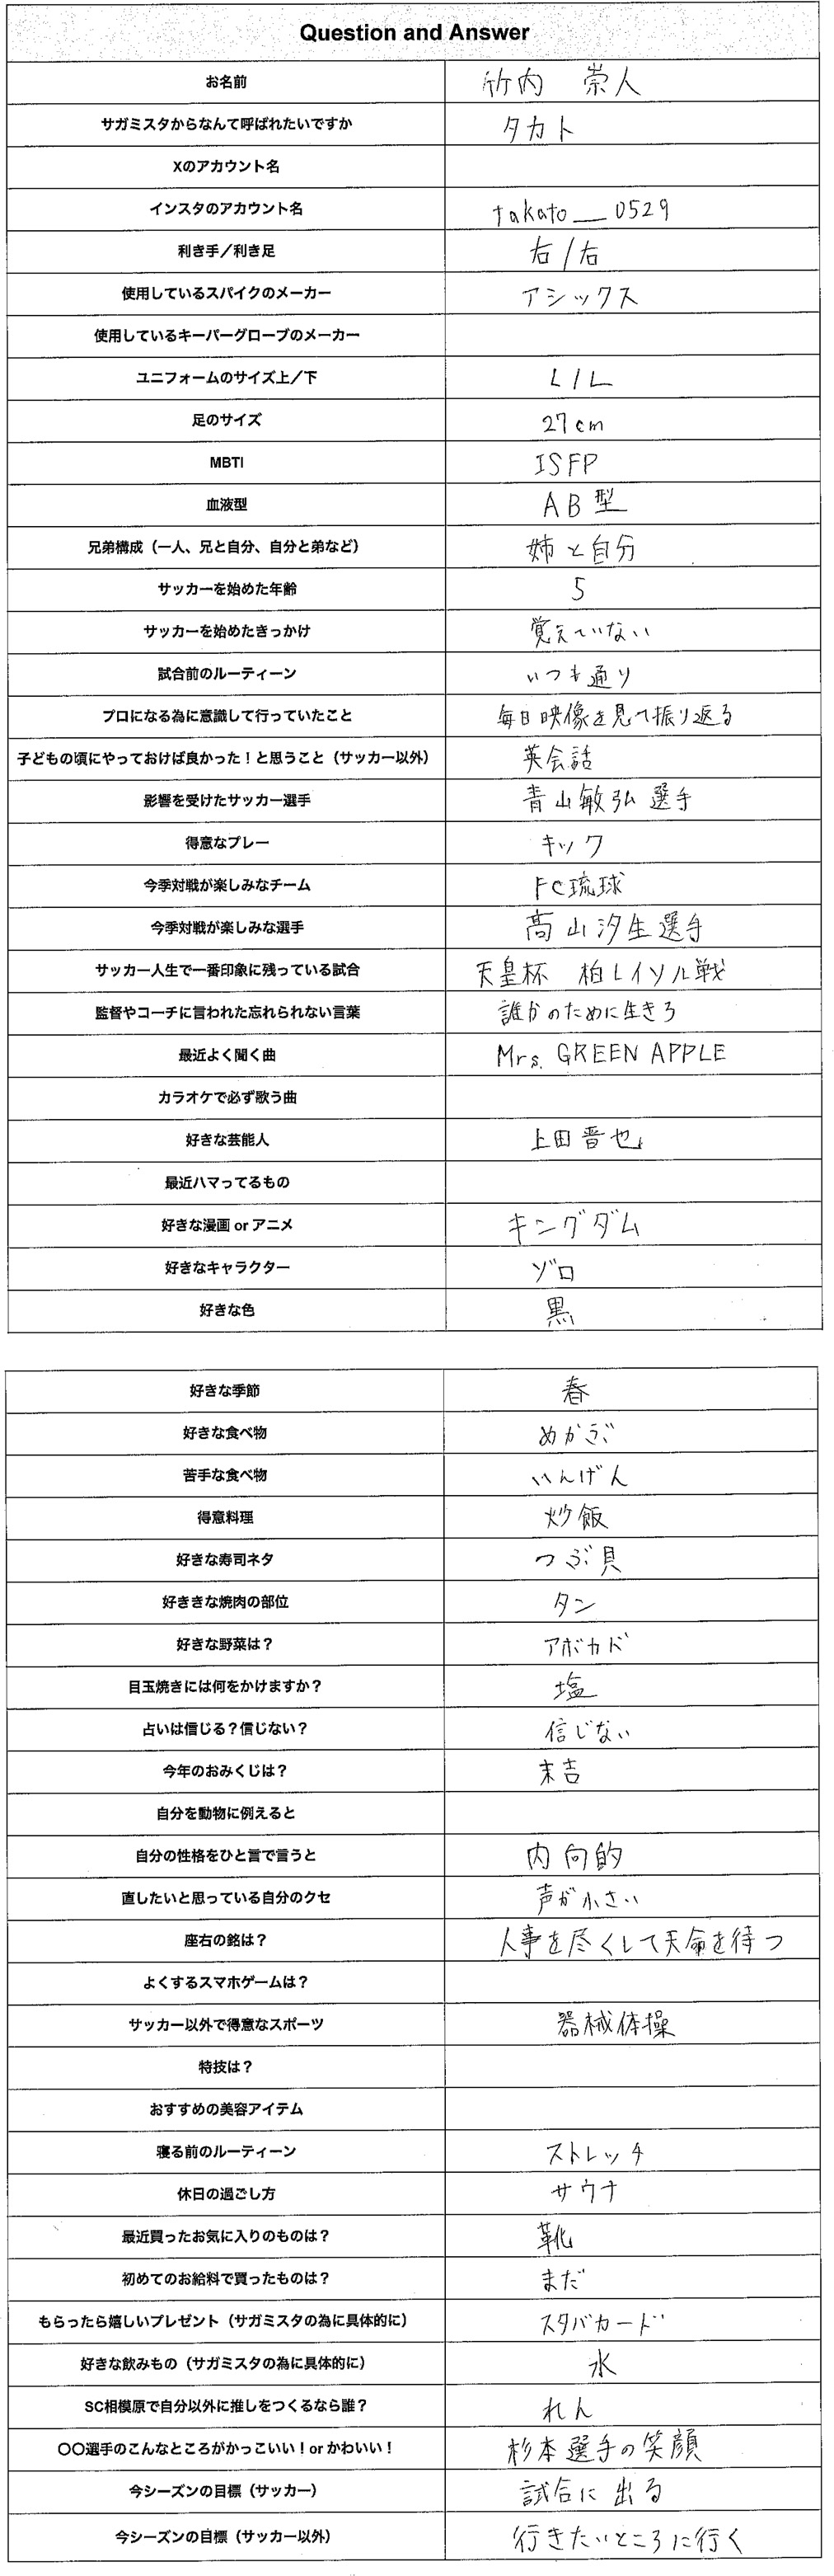 Question and Answer
お名前 竹内 崇人
サガミスタからなんて呼ばれたいですか タカト
Xのアカウント名
インスタのアカウント名 takato__0529
利き手／利き足 右/右
使用しているスパイクのメーカー アシックス
使用しているキーパーグローブのメーカー
ユニフォームのサイズ上／下 L/L
足のサイズ 27cm
MBTI ISFP
血液型 AB型
兄弟構成（一人、兄と自分、自分と弟など） 姉と自分
サッカーを始めた年齢 5
サッカーを始めたきっかけ 覚えていない
試合前のルーティーン いつも通り
プロになる為に意識して行っていたこと 毎日映像を見て振り返る
子どもの頃にやっておけば良かった！と思うこと（サッカー以外） 英会話
影響を受けたサッカー選手 青山敏弘選手
得意なプレー キック
今季対戦が楽しみなチーム FC琉球
今季対戦が楽しみな選手 髙山汐生選手
サッカー人生で一番印象に残っている試合 天皇杯 柏レイソル戦
監督やコーチに言われた忘れられない言葉 誰かのために生きろ
最近よく聞く曲 Mrs. GREEN APPLE
カラオケで必ず歌う曲
好きな芸能人 上田晋也
最近ハマってるもの
好きな漫画 or アニメ キングダム
好きなキャラクター ゾロ
好きな色 黒
好きな季節 春
好きな食べ物 めかぶ
苦手な食べ物 いんげん
得意料理 炒飯
好きな寿司ネタ つぶ貝
好ききな焼肉の部位 タン
好きな野菜は？ アボカド
目玉焼きには何をかけますか？ 塩
占いは信じる？信じない？ 信じない
今年のおみくじは？ 末吉
自分を動物に例えると
自分の性格をひと言で言うと 内向的
直したいと思っている自分のクセ 声が小さい
座右の銘は？ 人事を尽くして天命を待つ
よくするスマホゲームは？
サッカー以外で得意なスポーツ 器械体操
特技は？
おすすめの美容アイテム
寝る前のルーティーン ストレッチ
休日の過ごし方 サウナ
最近買ったお気に入りのものは？ 靴
初めてのお給料で買ったものは？ まだ
もらったら嬉しいプレゼント（サガミスタの為に具体的に） スタバカード
好きな飲みもの（サガミスタの為に具体的に） 水
SC相模原で自分以外に推しをつくるなら誰？ れん
〇〇選手のこんなところがかっこいい！or かわいい！ 杉本選手の笑顔
今シーズンの目標（サッカー） 試合に出る
今シーズンの目標（サッカー以外） 行きたいところに行く